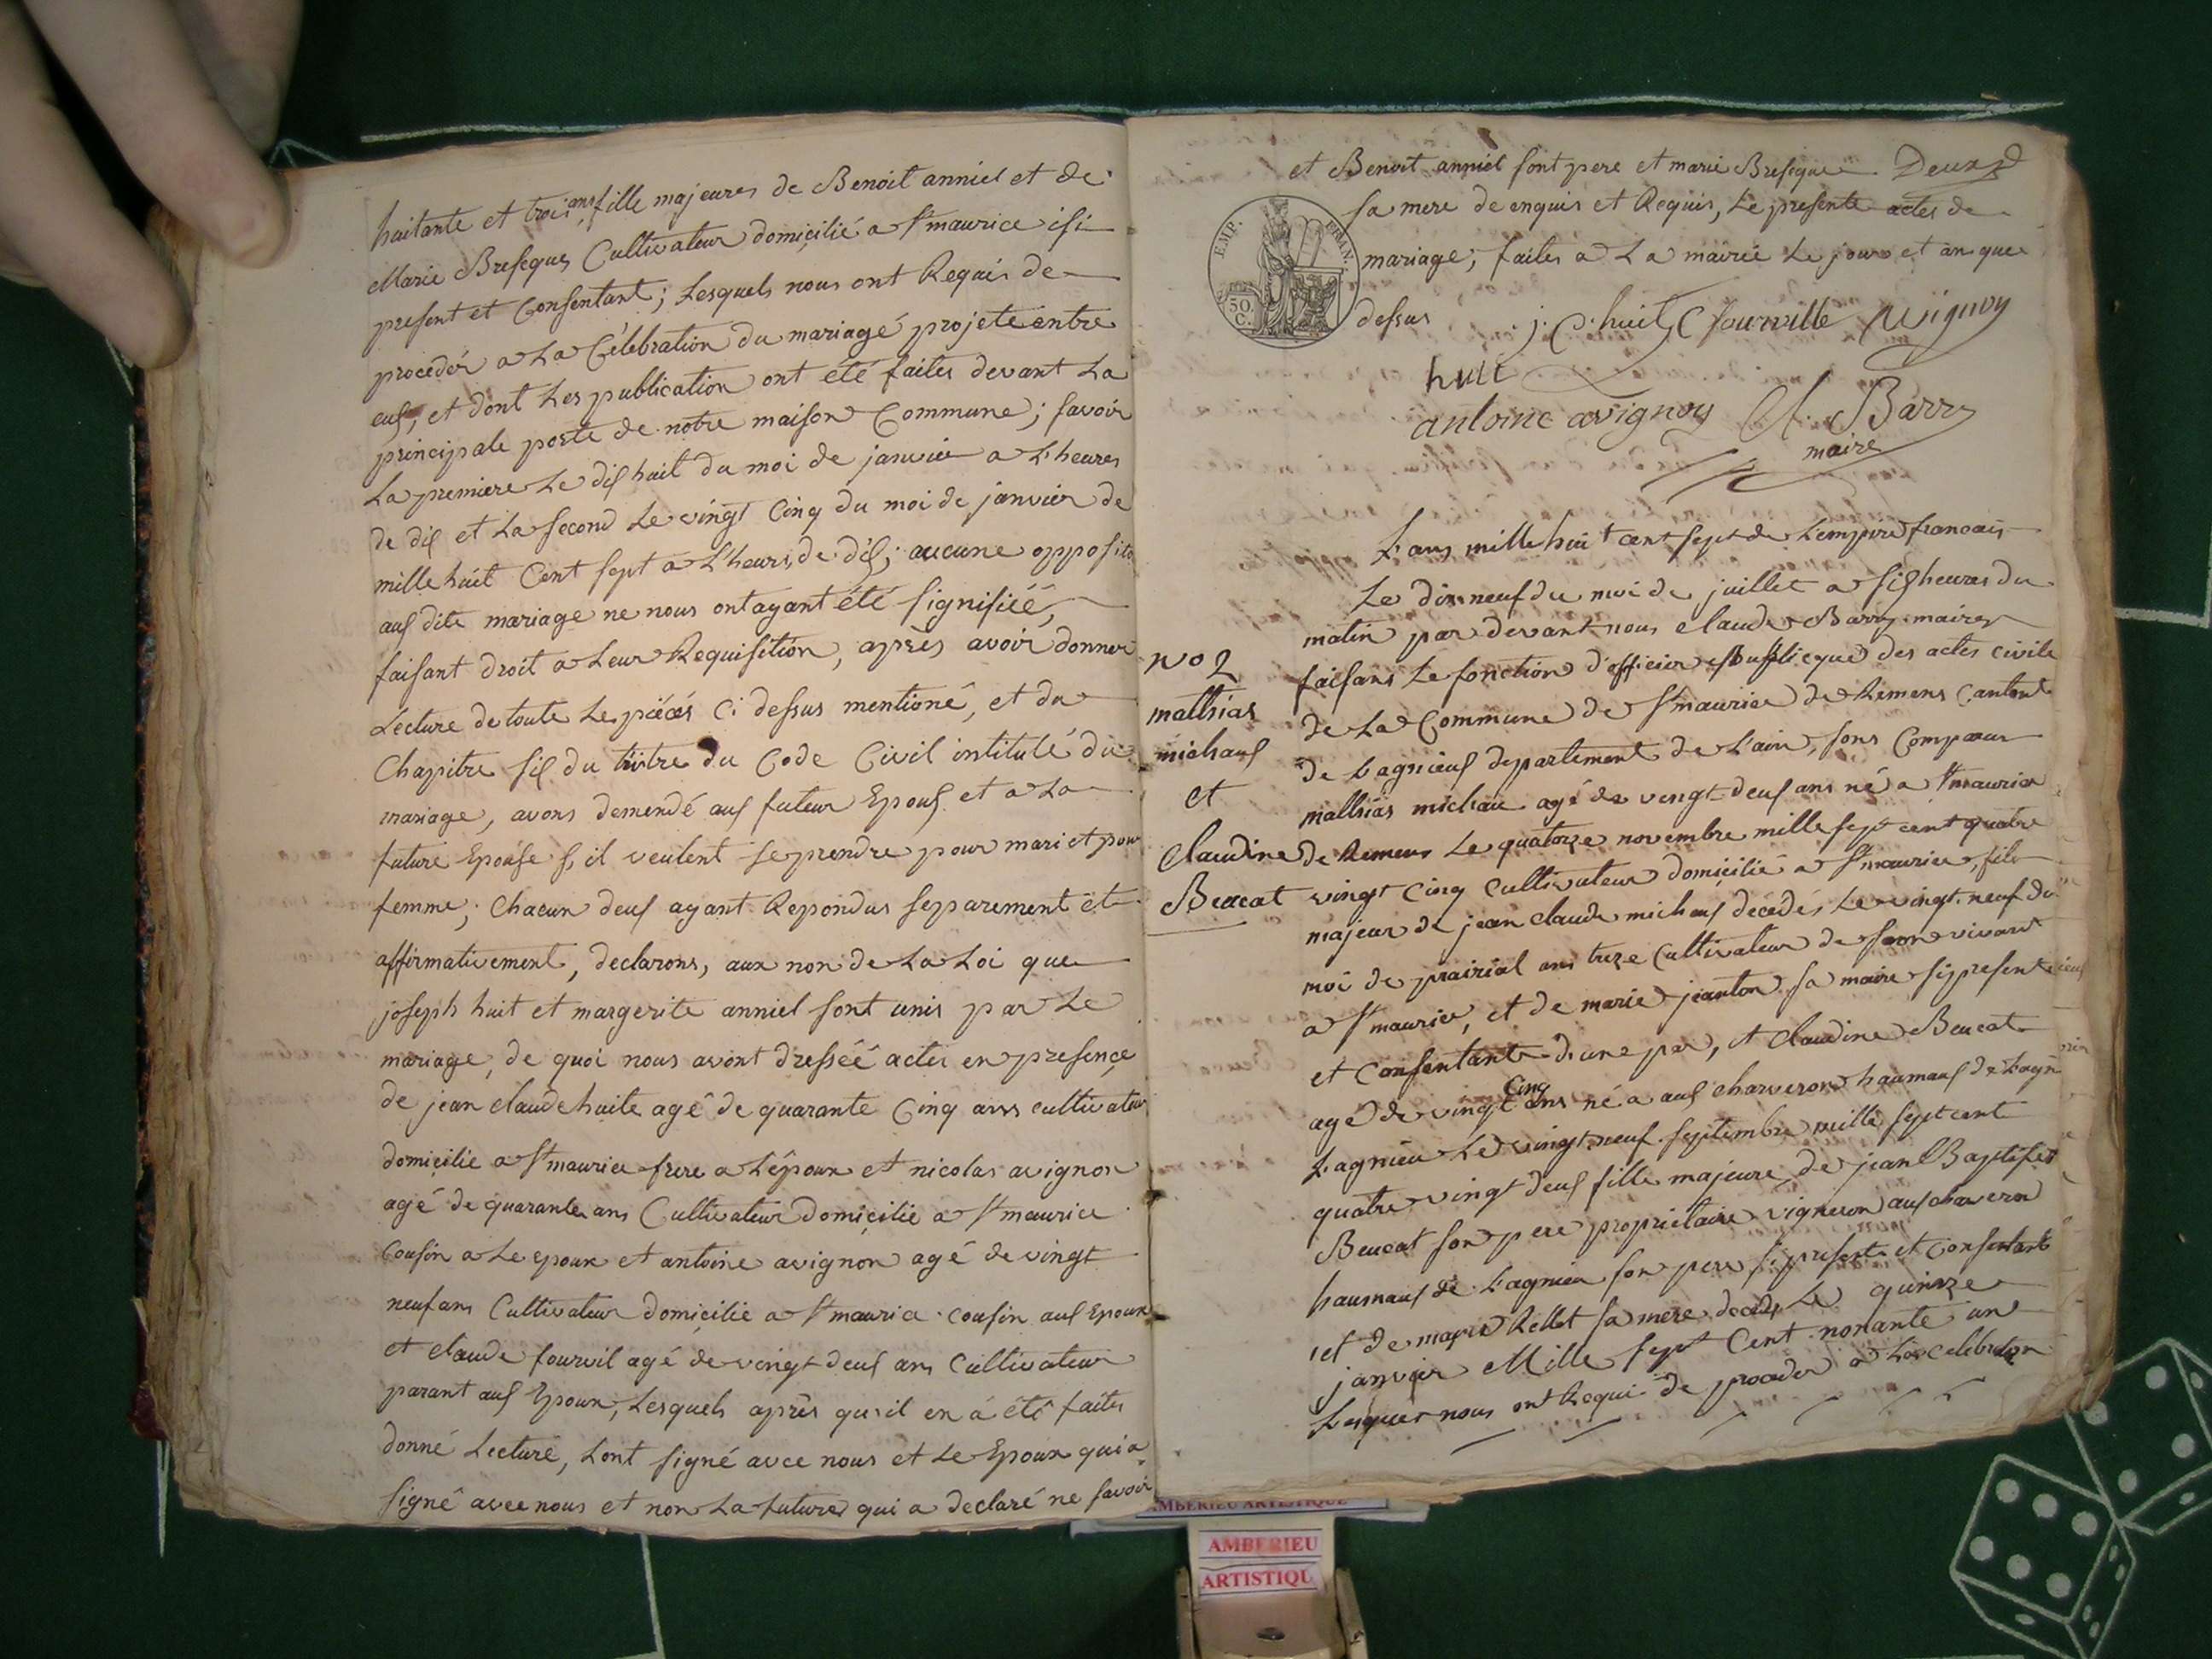 huitante et trois ans fille majeures de Benoit anniel et de
Marie Bresegues Cultivateur domicilié a St maurice isi
present et Consentant; Lesquels nous ont Requis de
proceder a La Célebration du mariagé projeté entre
eus, et dont Les publication ont été faites devant La
principale porte de notre maison Commune; savoir
La premiere Le dis huit du moi de janvier a L'heures
de dis et La second Le vingt Cinq du moi de janvier de
mille huit Cent sept a L'heure de dis; aucune opposito
aus dite mariage ne nous ont ayant été signifiéé,
faisant droit a Leur Requisition, après avoir donner
Lecture de toute Le piécés Ci dessus mentioné, et du
Chapitre sis du titre du Code Civil intitulé du
mariage, avons demendé aus futeur Epous et a La
future Epouse s'il veulent se prendre pour mari et pour
femme; Chacun deus ayant Repondus separement et
affirmativement, declarons, aux non de La Loi que
joseph huit et margerite anniel sont unis par Le
mariage, de quoi nous avont dresséé actes en presençe
de jean claude huite agé de quarante Cinq ans cultivateur
domicilie a St maurice frere a L'époux et nicolas avignon
agé de quarante ans Cultivateur domicilie a St maurice
Cousin a Le epoux et antoine avignon agé de vingt
neuf ans Cultivateur domicilie a St maurice cousin aus Epoux
et claude fourvil agé de vingt deus ans Cultivateur
parant aus Epoux, Lesquels après qu'il en á été faites
donné Lecturé, Lont signé avec nous et Le Epoux qui a
signé avec nous et non La future qui a declaré ne savoir
et Benoit anniel sont pere et marie Bresegue
sa mere de enquis et Requis, Le presente actes de
mariage; faites a La mairie Le jour et an que
EMP. FRAN.
50 C.
dessus j. C. huit C fourville Avignon
huit
antoine avignon Cl. Barry
maire
L'ans mille huit cent sept de L'empire francais
Le dix neuf du moi de juillet a sis heures du
matin par devant nous claude Barry maire
faisans Le fonction d'officier Publicque des actes civile
de La Commune de St maurice de Remens Cantont
de Lagnieus departement de L'ain, sons Comparus
mathias michau agé de vingt deus ans né a St maurice
de Remens Le quatorze novembre mille sept cent quatre
vingt Cinq Cultivateur domicilié a St maurice, fils
majeur de jean claude michaus décédés Le vingt neuf du
moi de prairial ans treze Cultivateur de son vivant
a St maurice, et de marie jeanton sa maire si present
et Consentante d'une par, et claudine Beucat
agé de vingt Cinq ans né a aus charveron haumaus de Lagn
Lagnieu Le vingt neuf septembre mille sept cent
quatre vingt deus fille majeure de jean Baptiste
Beucat son pere proprietaire vigneron aus charveron
haumaus de Lagnieu son pere si present et Consentant
et de marie Rellet sa mere decedé Le quinze
janvier Mille sept Cent nonante un
Lesquer nous ont Requi de proceder a La celebration
no 2
mathias
michaus
et
Claudine
Beucat
AMBERIEU ARTISTIQUE
AMBERIEU
ARTISTIQU